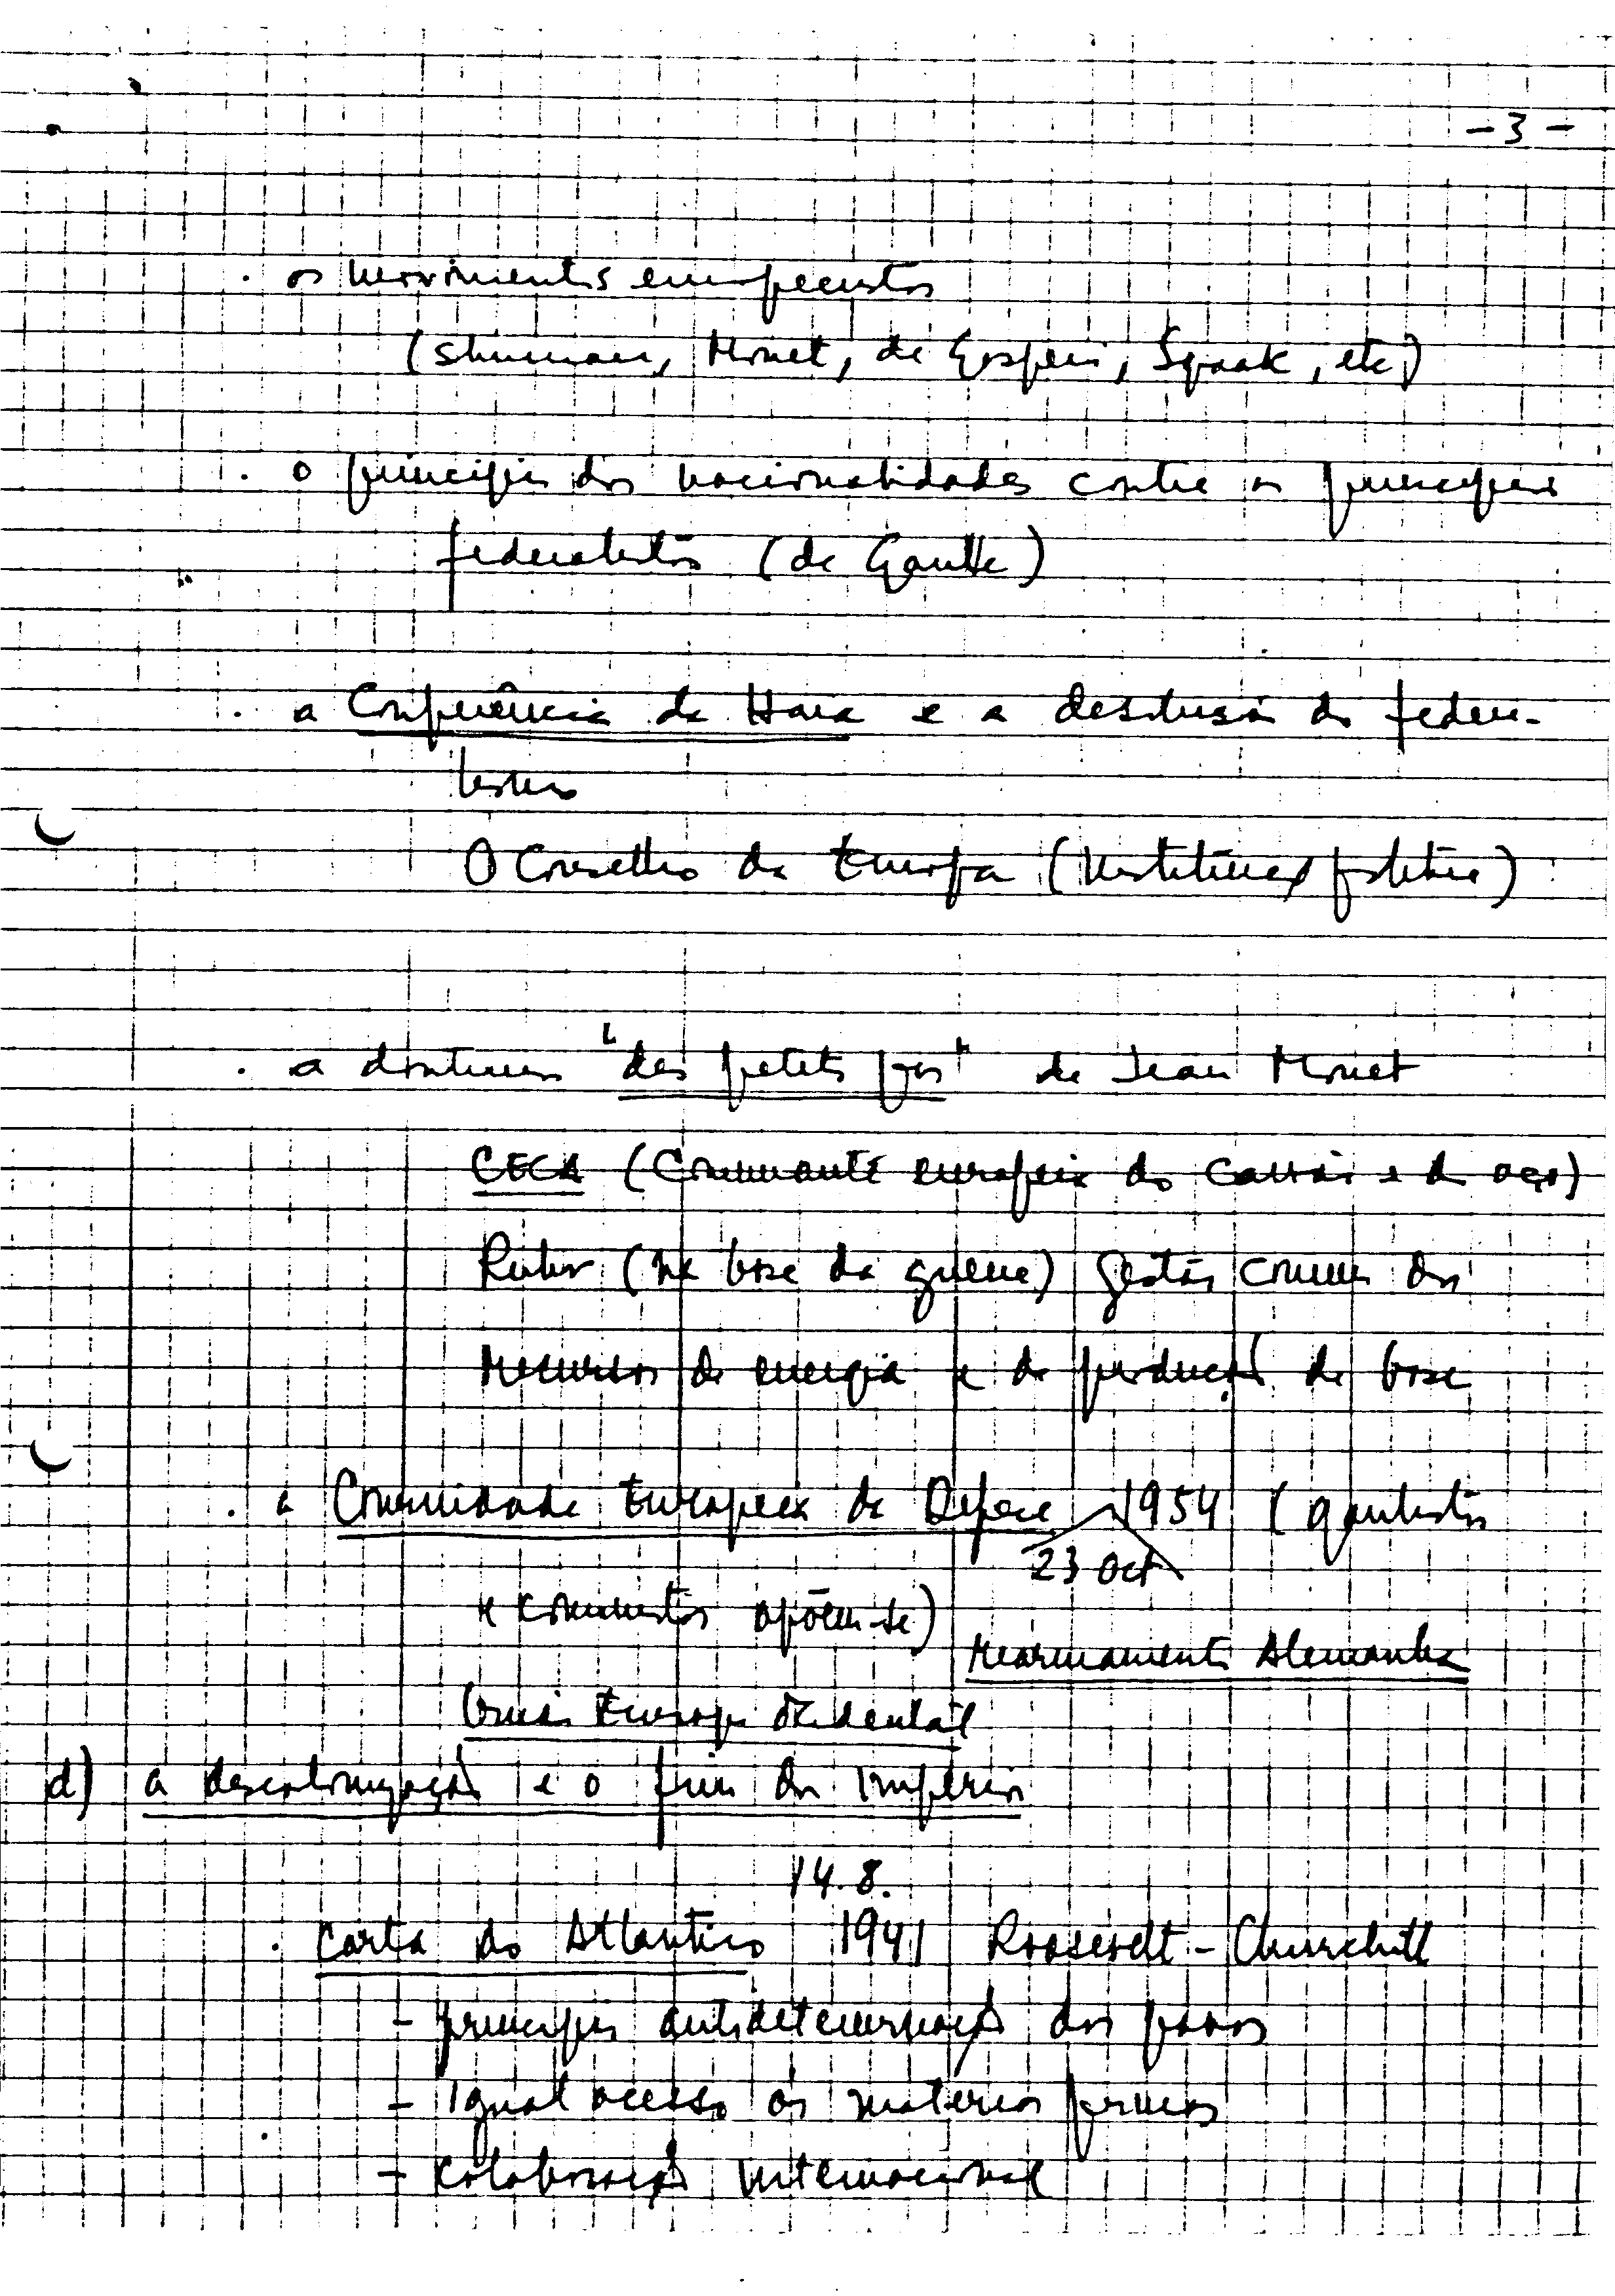 - 3 -
. os movimentos europeistas
(Shuman, Monet, de Gasperi, Spaak, etc)
. o principio das nacionalidades contra os principios
federalistas (de Gaulle)
. a Conferência de Haia e a desilusão do federa-
lismo
O Conselho da Europa (instituição política)
. a doutrina "des petits pas" de Jean Monet
CECA (Comunauté europeia do carvão e do aço)
Ruhr (na base da guerra) gestão comum dos
recursos de energia e de produção de base
. a Comunidade Europeia de Defesa 1954 (gaulistas
23 Oct
e comunistas opõem-se)
rearmamento Alemanha
União Europa Ocidental
d) a descolonização e o fim dos impérios
14.8.
. Carta do Atlantico 1941 Roosevelt - Churchill
- principio autodeterminação dos povos
- igual acesso às matérias primas
- colaboração internacional